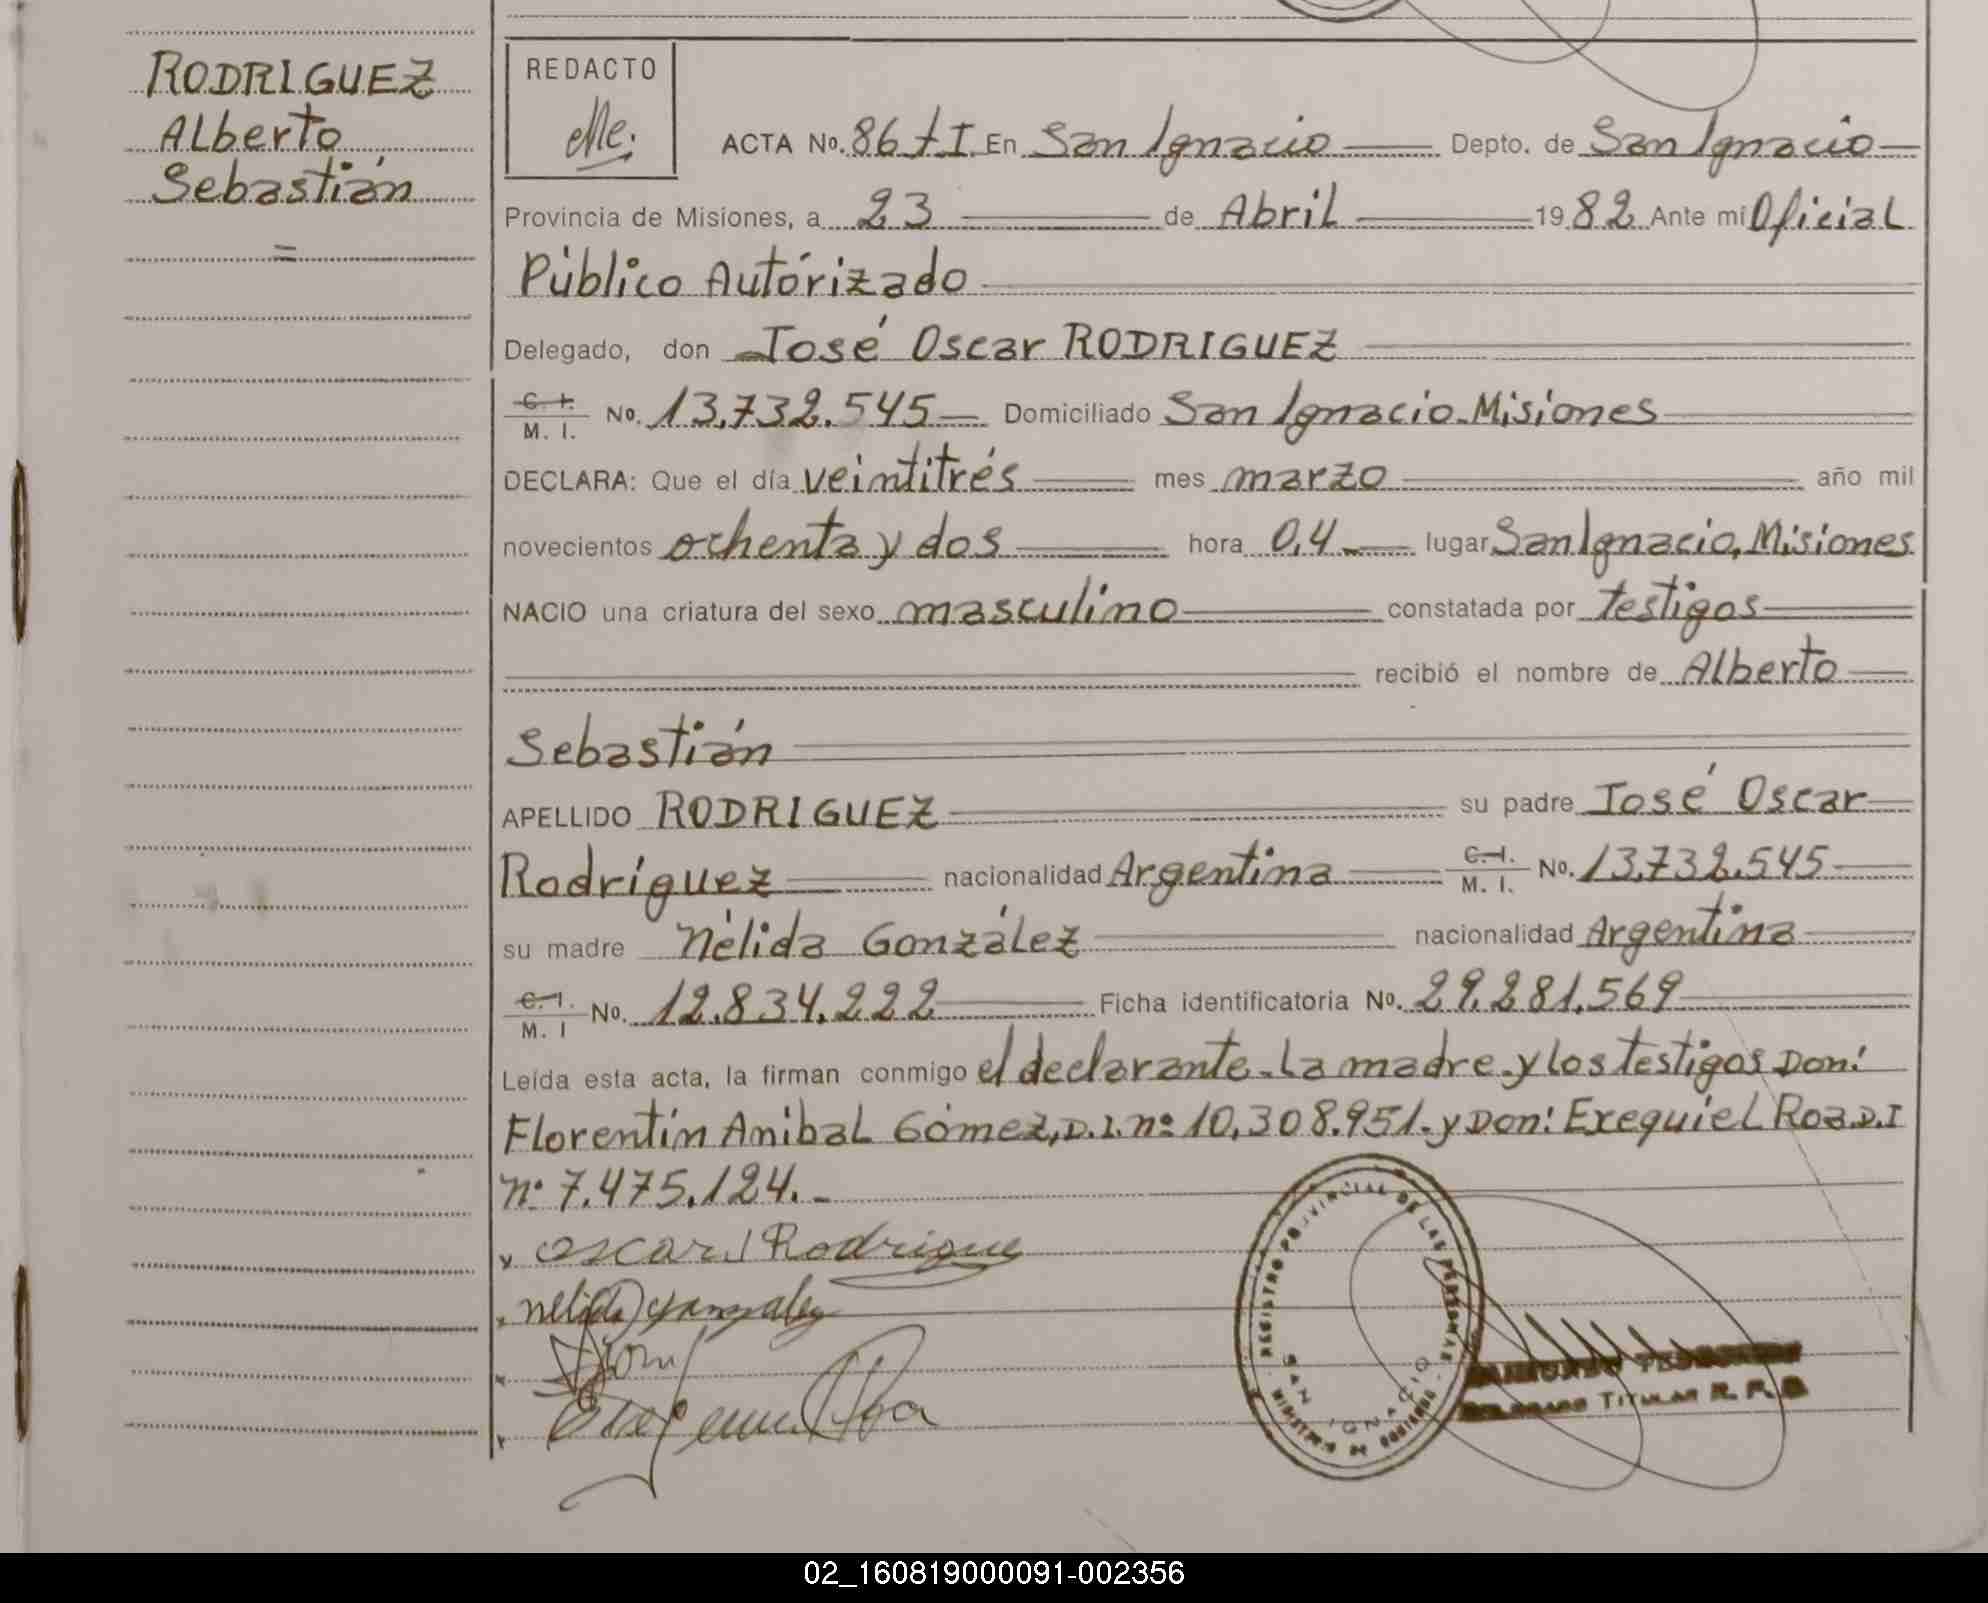 RODRIGUEZ
Alberto
Sebastián
=
REDACTO
ACTA No. 86 t I En San Ignacio Depto. de San Ignacio
Provincia de Misiones, a 23 de Abril 1982 Ante mí Oficial
Público Autórizado
Delegado, don José Oscar RODRIGUEZ
C. I. M. I. No. 13.732.545 Domiciliado San Ignacio-Misiones
DECLARA: Que el día veintitrés mes marzo año mil
novecientos ochenta y dos hora 0,4 lugar San Ignacio, Misiones
NACIO una criatura del sexo masculino constatada por testigos
recibió el nombre de Alberto
Sebastián
APELLIDO RODRIGUEZ su padre José Oscar
Rodríguez nacionalidad Argentina C. I. M. I. No. 13.732.545
su madre Nélida González nacionalidad Argentina
C. I. M. I No. 12.834.222 Ficha identificatoria No. 29.281.569
Leída esta acta, la firman conmigo el declarante-La madre-y los testigos Don:
Florentín Anibal Gómez, D.I. nº 10.308.951.-y Don: Exequiel Roa. D.I
nº 7.475.124.-
oscar J Rodrigue
nelida gonzalez
Roa
REGISTRO PROVINCIAL DE LAS PERSONAS
SAN IGNACIO
MINISTERIO DE GOBIERNO
TITULAR R. P. P.
02_160819000091-002356